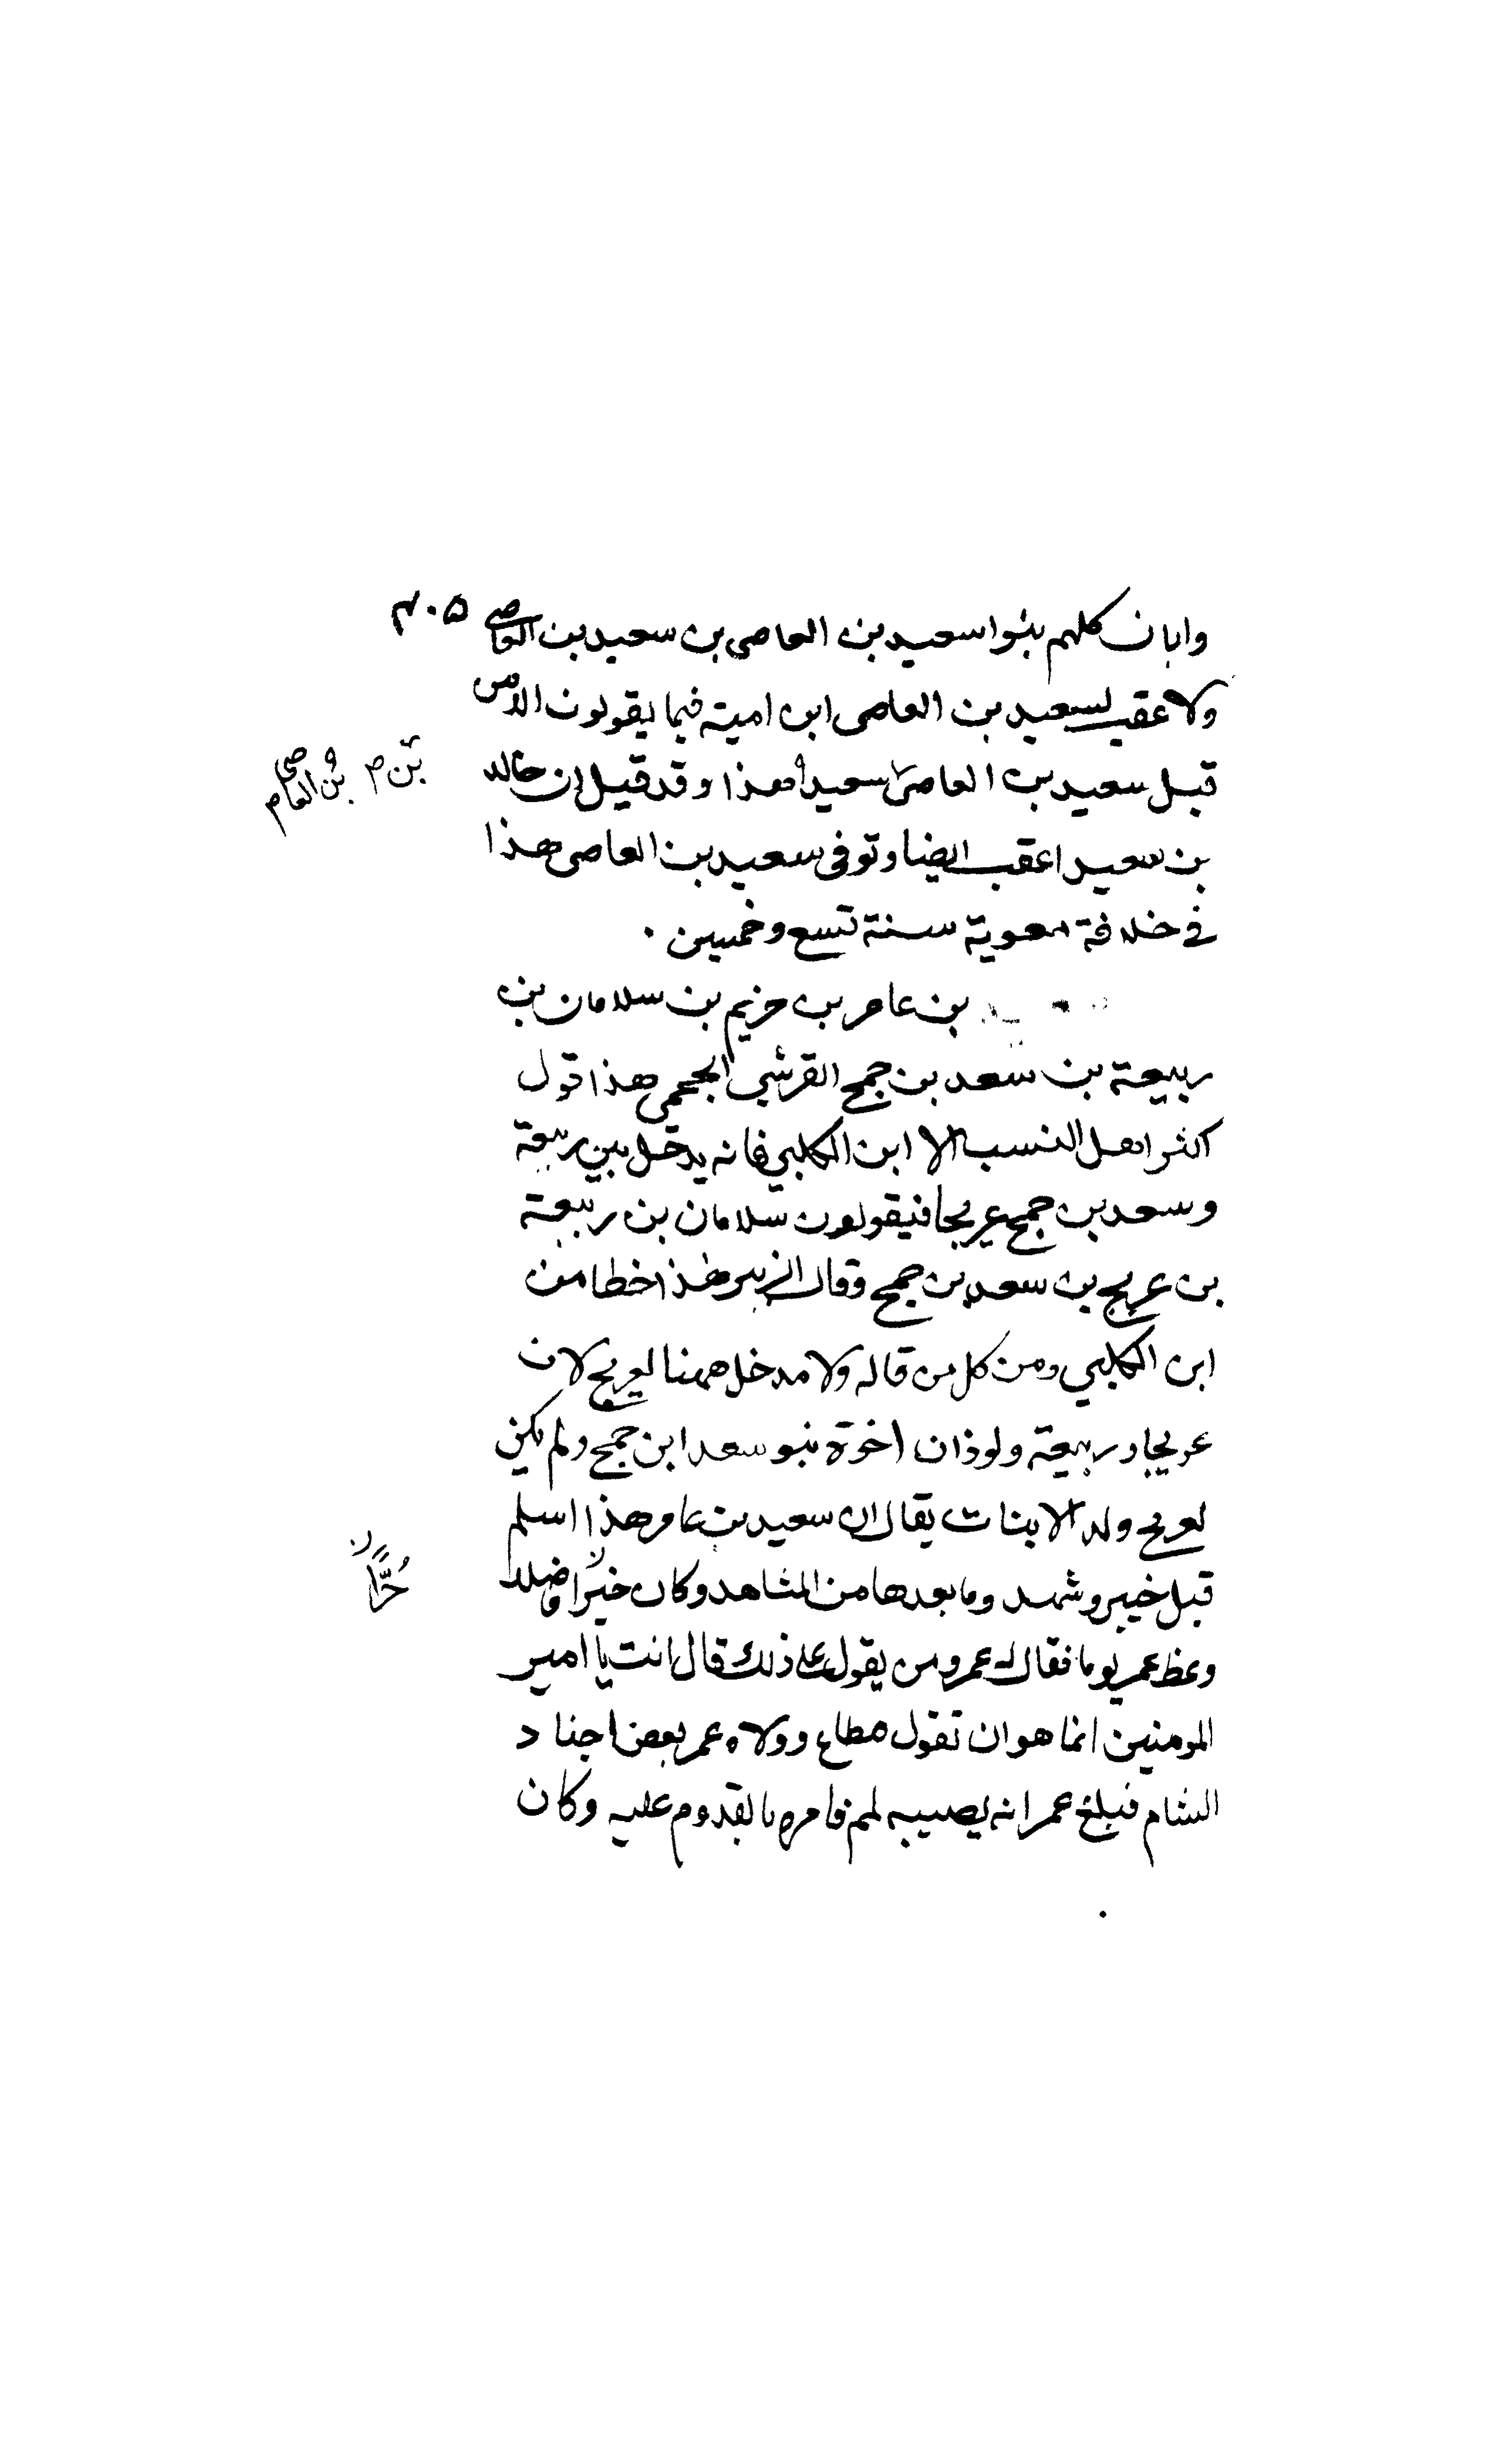 وابان كلهم بنوا سعيد بن العاصى بن سعيد بن العاصى ٣٠٥
ولا عقب لسعيد بن العاصى ابن امية فيما يقولون الا من
قبل سعيد بن العاصى سعيد هذا وقد قيل ان خالد
بن م بن العاصى م
بن سعيد اعقب ايضا وتوفى سعيد بن العاصى هذا
في خلافة معوية سنة تسع وخمسين .
بن عامر بن حزيم بن سلامان بن
ربيعة بن سعد بن جمح القرشي الجمحي هذا قول
اكثر اهل النسب الا ابن الكلبي فانه يدخل بين ربيعة
وسعد بن جمح عريجا فيقولون سلامان بن ربيعة
بن عريج بن سعد بن جمح وقال الزبير هذا خطا من
ابن الكلبي ومن كل من قاله ولا مدخل ههنا لعريج لان
عريجا وربيعة ولوذان اخوة بنو سعد ابن جمح ولم يكن
لعريج ولد الا بنات يقال ان سعيد بن عامر هذا اسلم
قبل خيبر وشهد وما بعدها من المشاهد وكان خيرا فاضلا
وعظ عمر يوما فقال له عمر ومن يقول على ذلك قال انت يا امير
المومنين انما هو ان تقول فتطاع وولاه عمر بعض اجناد
الشام فبلغ عمر انه يصيبه لمم فامره بالقدوم عليه وكان